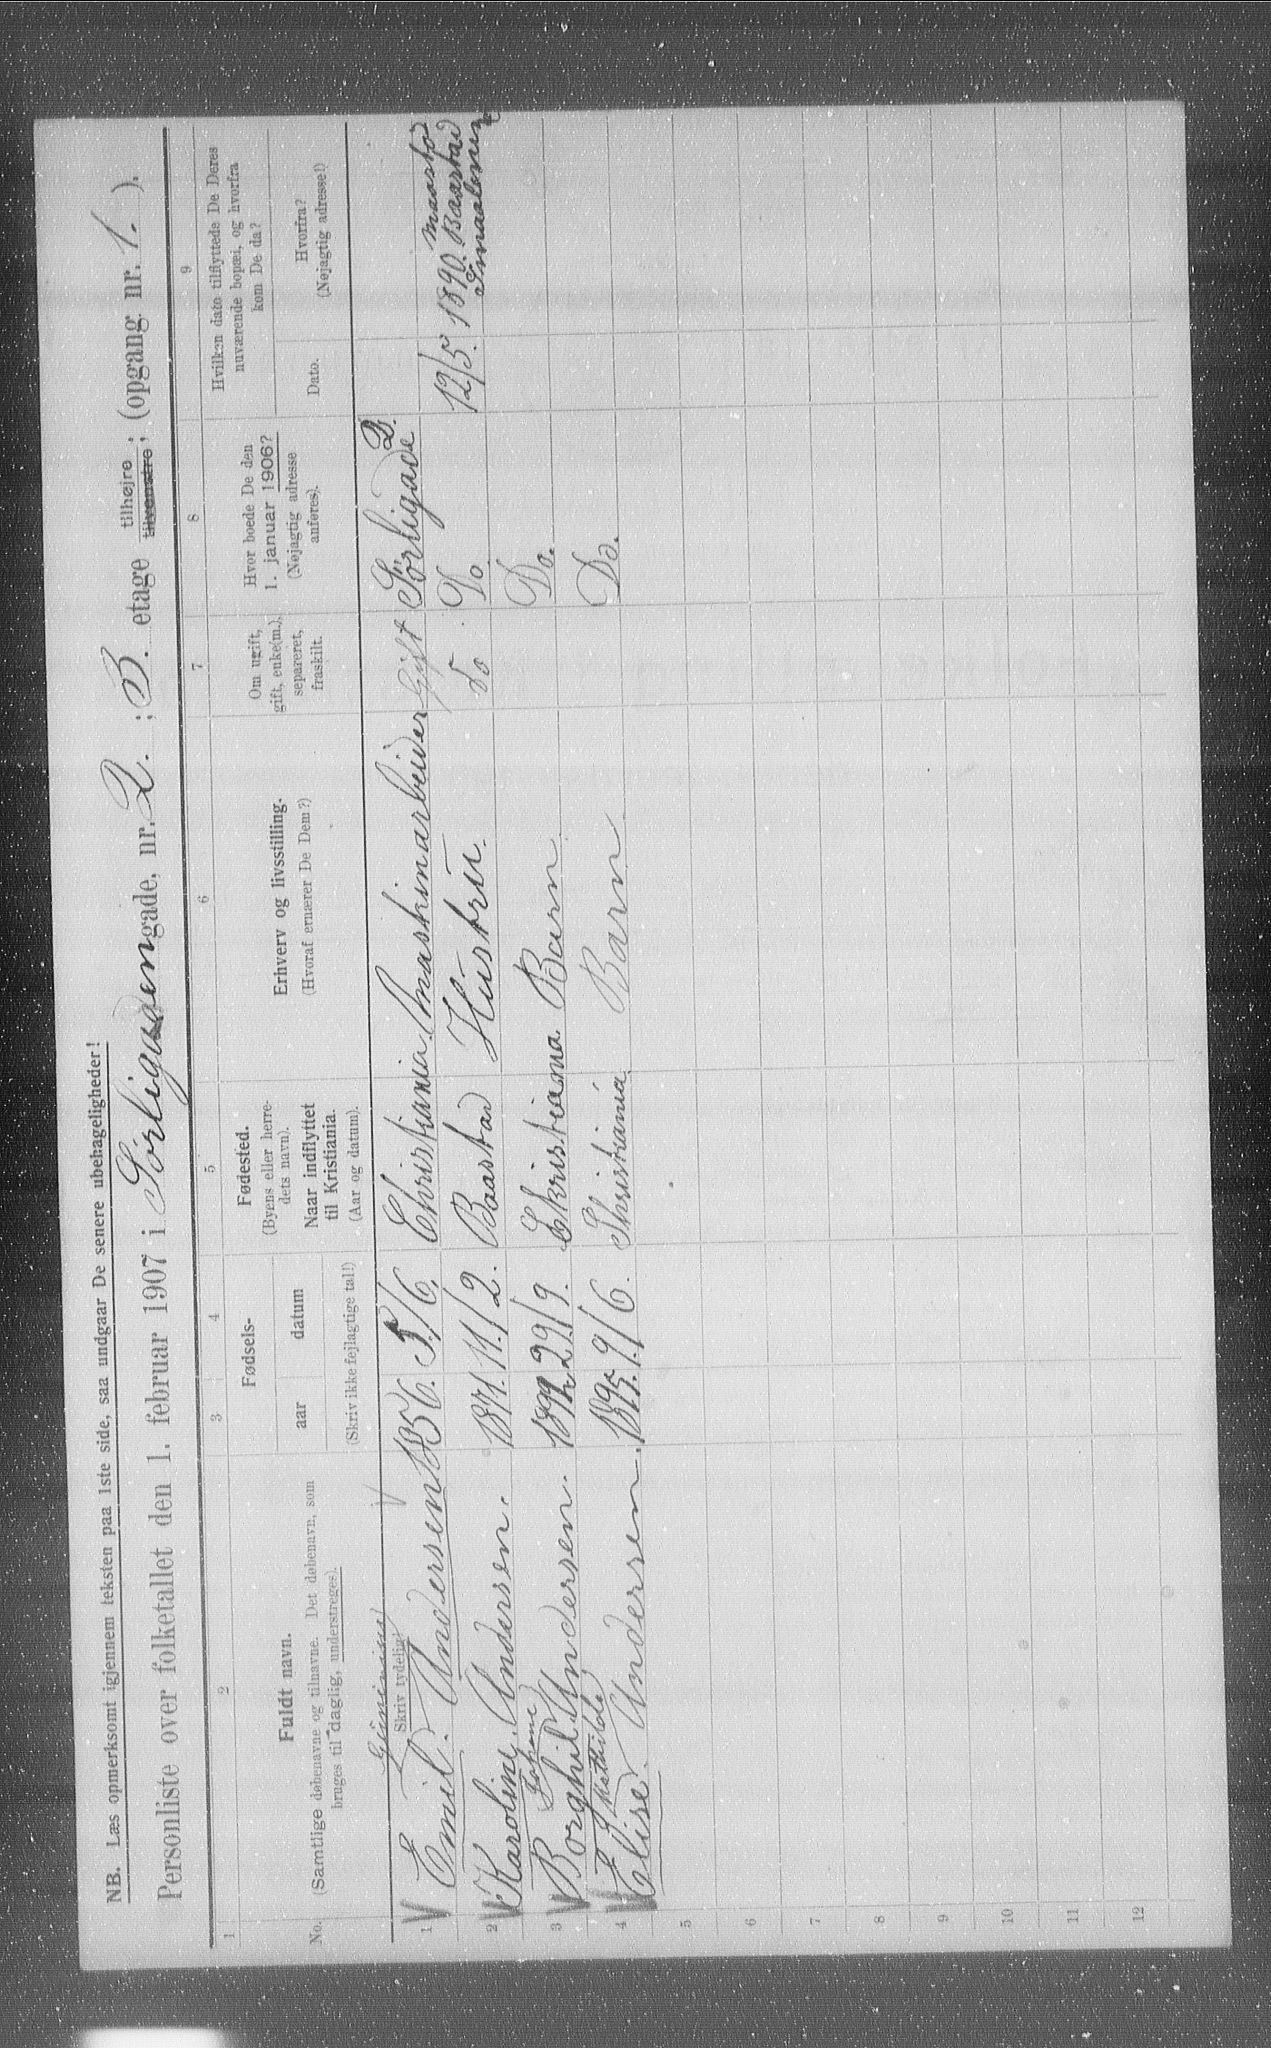 NB. Læs opmerksomt igjennem teksten paa 1ste side, saa undgaar De senere ubehageligheder!
Personliste over folketallet den 1. februar 1907 i Sørligadengade, nr. 2. ; 3. etage tilhøjre tilvenstre ; (opgang nr. 1. ).
1 2 3 4 5 6 7 8 9
No.
Fuldt navn.
(Samtlige døbenavne og tilnavne. Det døbenavn, som
bruges til daglig, understreges).
Skriv tydeligt
Fødsels-
aar datum
(Skriv ikke fejlagtige tal!)
Fødested.
(Byens eller herre-
dets navn).
Naar indflyttet
til Kristiania.
(Aar og datum).
Erhverv og livsstilling.
(Hvoraf ernærer De Dem?)
Om ugift,
gift, enke(m.),
separeret,
fraskilt.
Hvor boede De den
1. januar 1906?
(Nøjagtig adresse
anføres).
Hvilken dato tilflyttede De Deres
nuværende bopæl, og hvorfra
kom De da?
Dato.
Hvorfra?
(Nøjagtig adresse!)
1 Emil Andersen 1856. 5/6. Christiania Maskinarbeider Gift Sørligade 2.
2 Karoline Andersen. 1871. 11/2. Baastad Hustru Do Do. 12/5. 1890. Baastad
3 Borghil Andersen. 29/9. Kristiania Barn Do.
4 Elise Mathilde Andersen. 1895. 9/6. Christiania Barn Do.
5
6
7
8
9
10
11
12